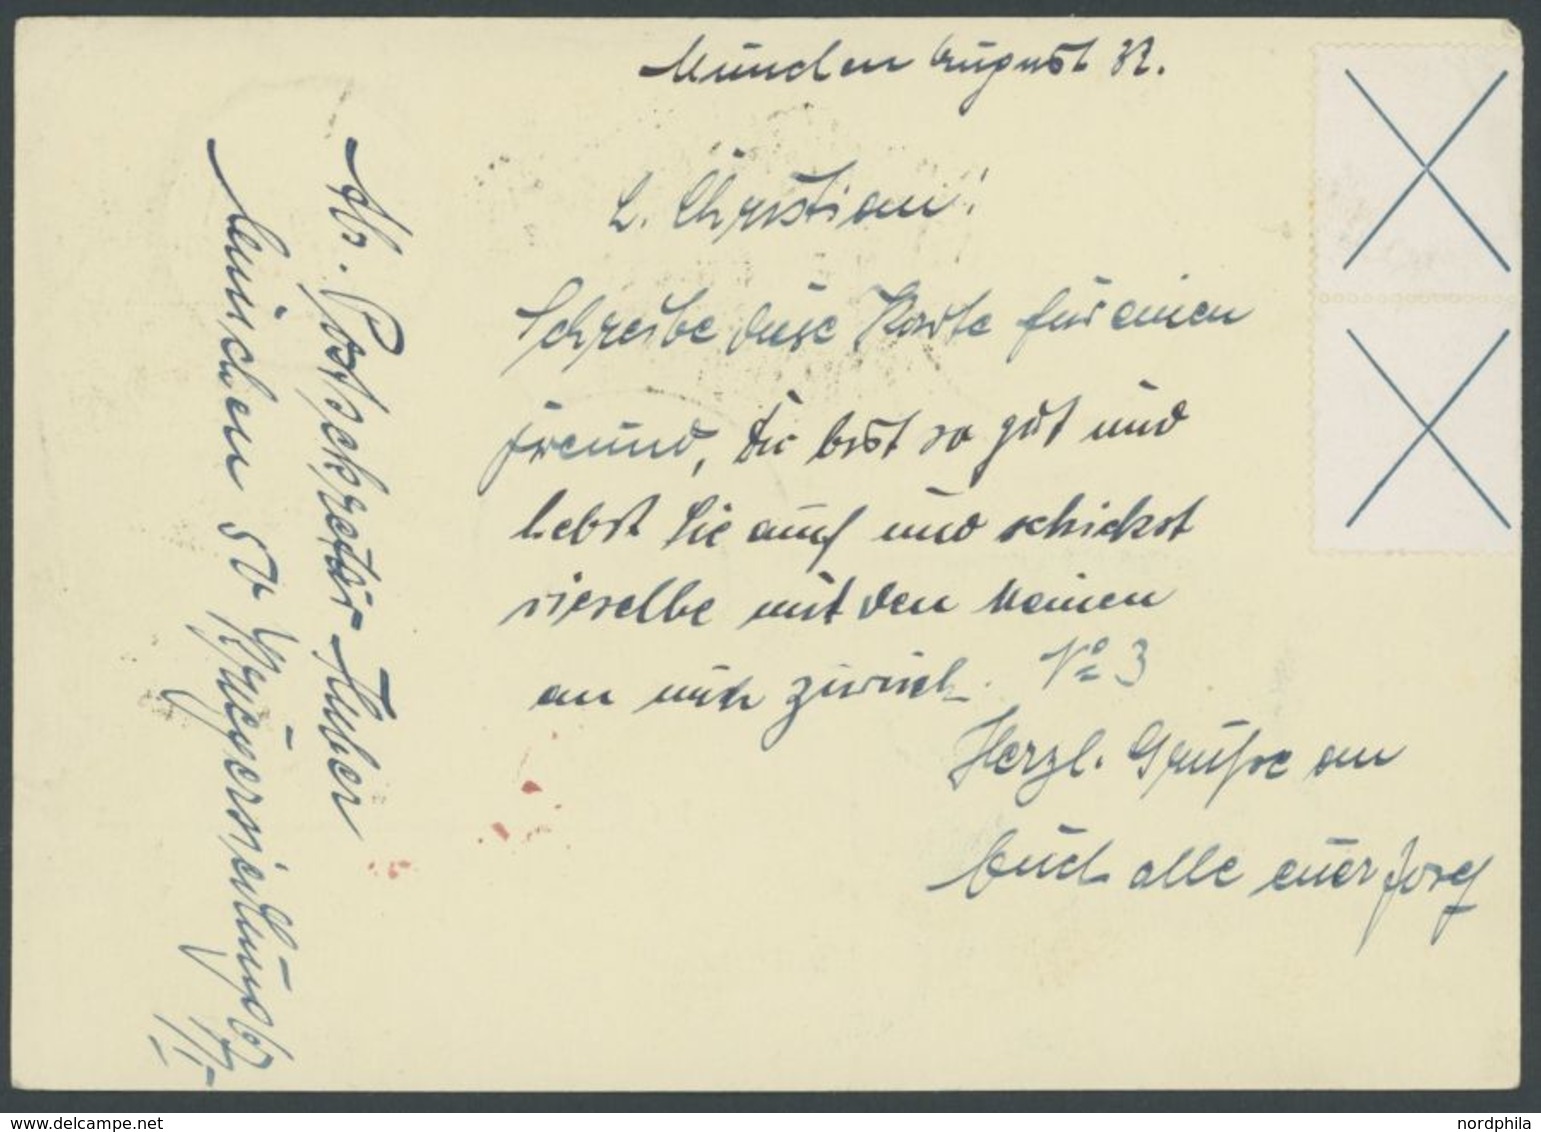 München August 32.
L. Christian!
Schreibe diese Karte für einen
Freund, Du bist so gut und
hebst Sie auf und schickst
dieselbe mit den meinen
an mich zurück. No 3
Herzl. Grüße an
Euch alle euer Josef
Ab. Postsekretär Huber
München 50
nordphila